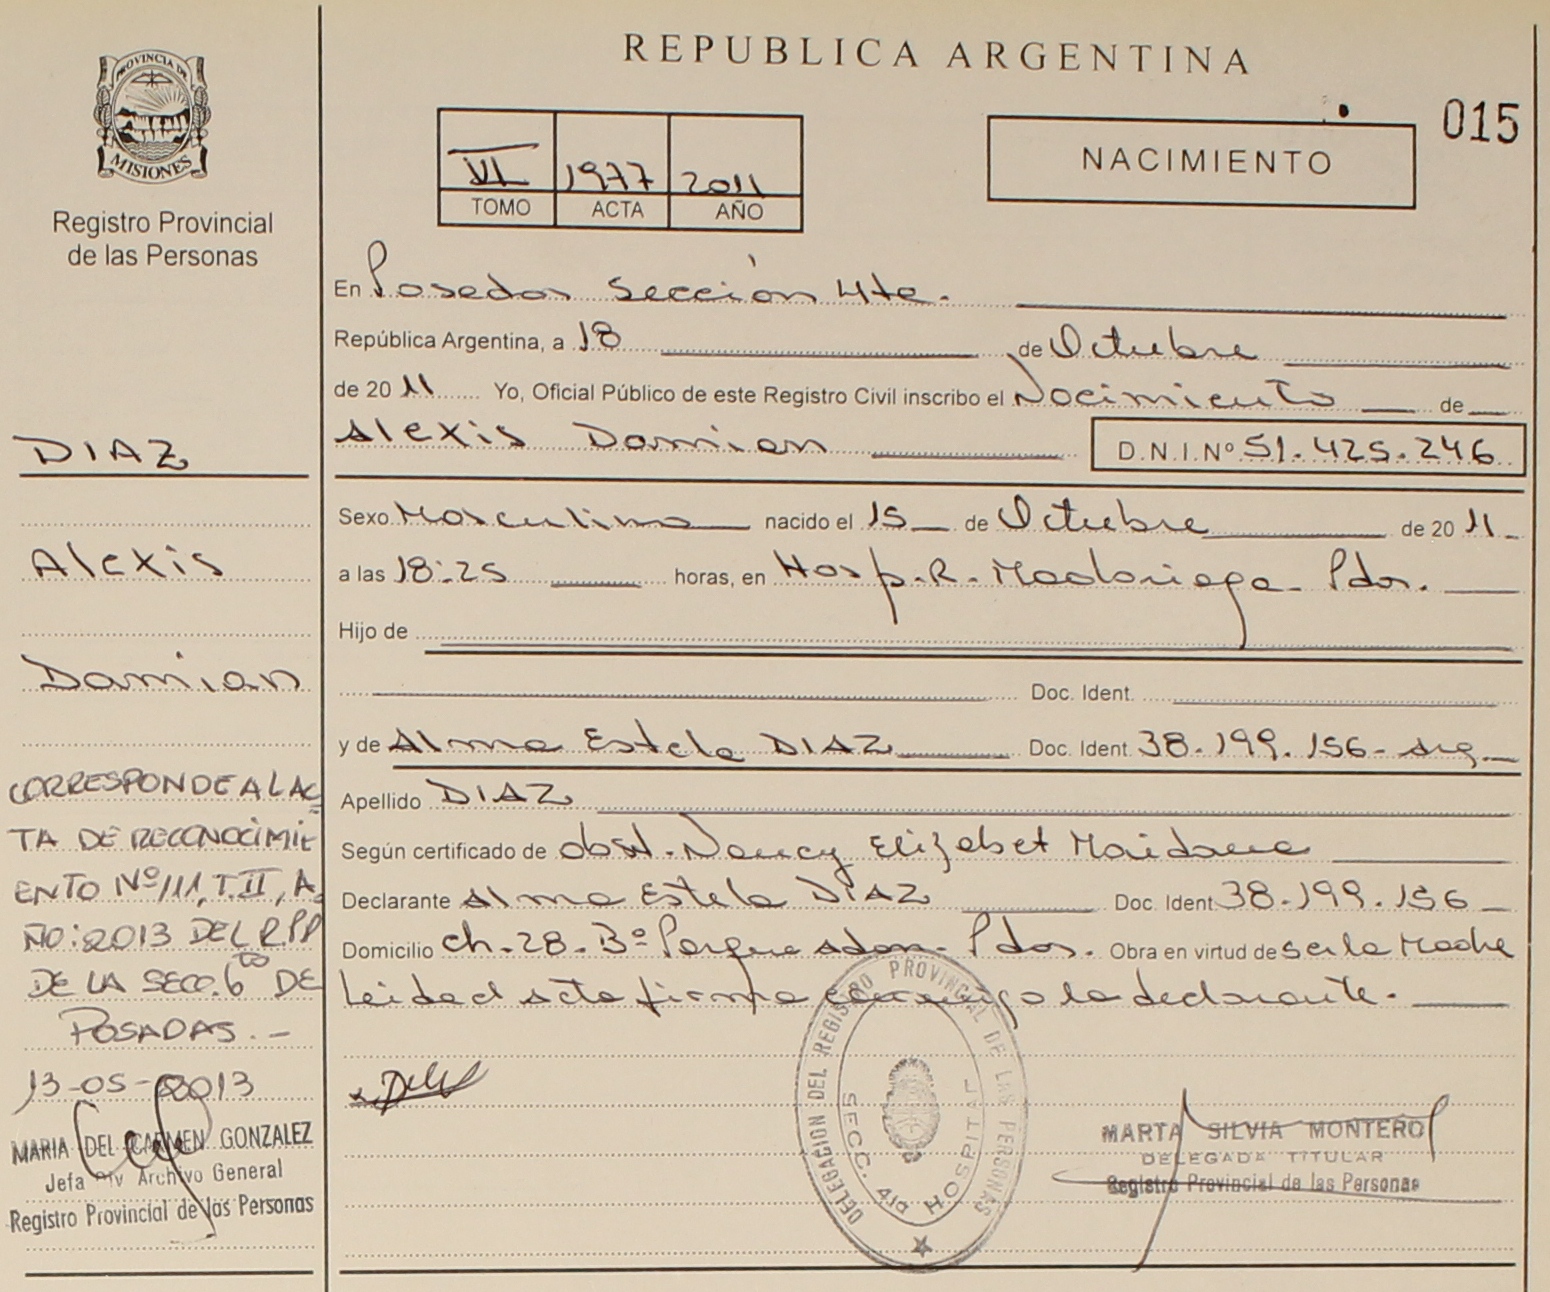 REPUBLICA ARGENTINA
PROVINCIA DE
MISIONES
Registro Provincial
de las Personas
VI 1977 2011
TOMO ACTA AÑO
NACIMIENTO
015
En Posadas Sección 4ta.
República Argentina, a 18 de Octubre
de 2011 Yo, Oficial Público de este Registro Civil inscribo el Nacimiento de
Alexis Damian D.N.I.Nº 51.425.246
Sexo Masculino nacido el 15 de Octubre de 2011
a las 18:25 horas, en Hosp. R. Madariaga - Pdas.
Hijo de
Doc. Ident.
y de Alma Estela DIAZ Doc. Ident. 38.199.156- Arg.
Apellido DIAZ
Según certificado de obst. Nancy Elizabet Maidana
Declarante Alma Estela DIAZ Doc. Ident. 38.199.156
Domicilio ch. 28. Bº Parque Adam - Pdas. Obra en virtud de ser la Madre
Leida el acta firma conmigo la declarante.
DIAZ
Alexis
Damian
CORRESPONDE A LAC
TA DE RECONOCIMIE
ENTO Nº 111, T. II, A
ÑO: 2013 DEL R.P.P
DE LA SECC. 6ta DE
POSADAS. -
13-05-2013
MARIA DEL CARMEN GONZALEZ
Jefa Div Archivo General
Registro Provincial de las Personas
DELEGACION DEL REGISTRO PROVINCIAL DE LAS PERSONAS
SECC. 4ta HOSPITAL
MARTA SILVIA MONTERO
DELEGADA TITULAR
Registro Provincial de las Personas